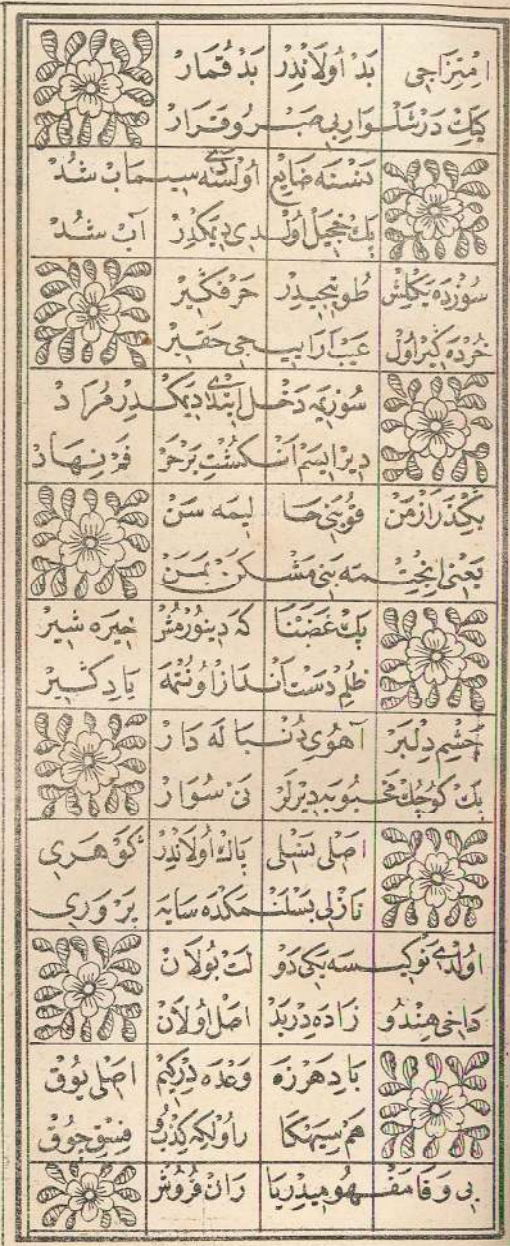 امتزاجی بد اولاندر بد قمار
كیك در شلواربی صبر و قرار
نسنه ضایع اولسه دی سیماب شد
پك خجیل اولدی دیمكدر آب شد
سوزده یكلش طویجیدر حرفكیر
خرده كیر اول عیب آراییجی حقیر
سوزیمه دخل ایتدی دیمكدر مراد
دیر ایسم انكشت بر حرفم نهاد
بكذر از من قو بنی حالیمه سن
یعنی اینجتمه بنی مشكن بمن
پك غضبناكه دینورمش خیره شیر
ظلم دست اندازاونتمه یادكیر
چشم دلبر آهوی دنباله دار
پك كوچك محبوبه دیرلر نی سوار
اصلی نسلی پاك اولاندر كوهری
نازلی بسلنمكده سایه پروری
اولدی نوكیسه یكی دولت بولان
داخی هندو زاده در بد اصل اولان
باد هرزه وعده دركیم اصلی یوق
هم سیهكار اولكه كذب و فسقی چوق
بی وفا مفهومیدر یاران فروش